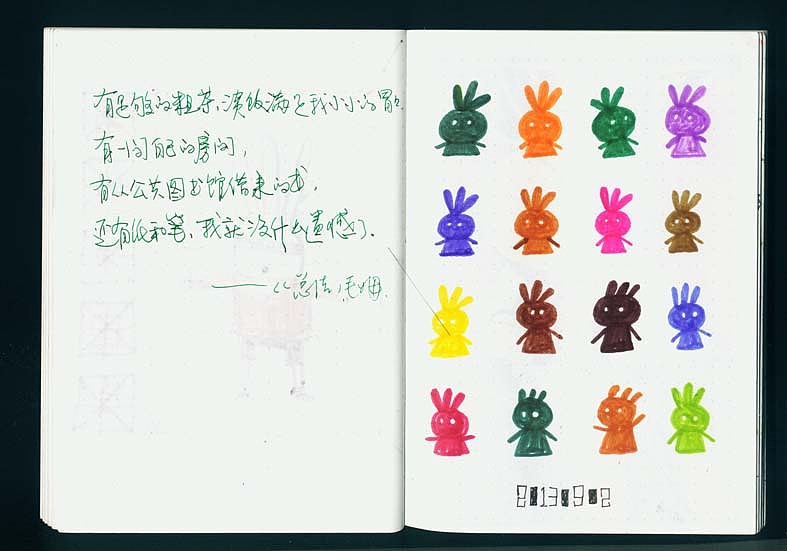 有足够的粗茶、淡饭满足我小小的胃。
有一间自己的房间，
有从公共图书馆借来的书，
还有纸和笔，我就没什么遗憾了。
毛姆
2013 9 2